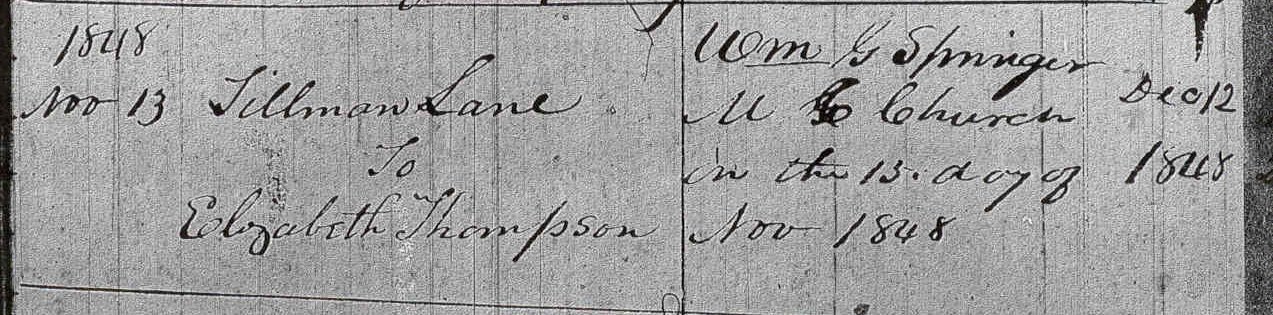 1848
Nov 13 Tillman Lane
To
Elizabeth Thompson
Wm G Springer
M E Church
in the 13 day of
Nov 1848
Dec 12
1848